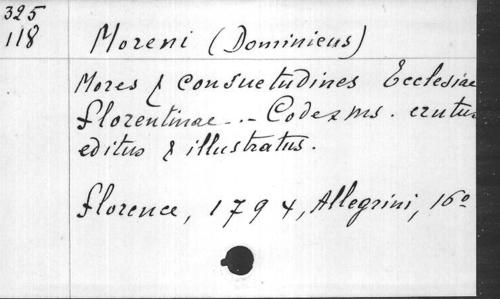 325
118
Moreni (Dominicus)
Mores & consuetudines Ecclesiae
florentinae ... Codex ms. erutus
editus & illustratus.
florence, 1794, Allegrini, 16º